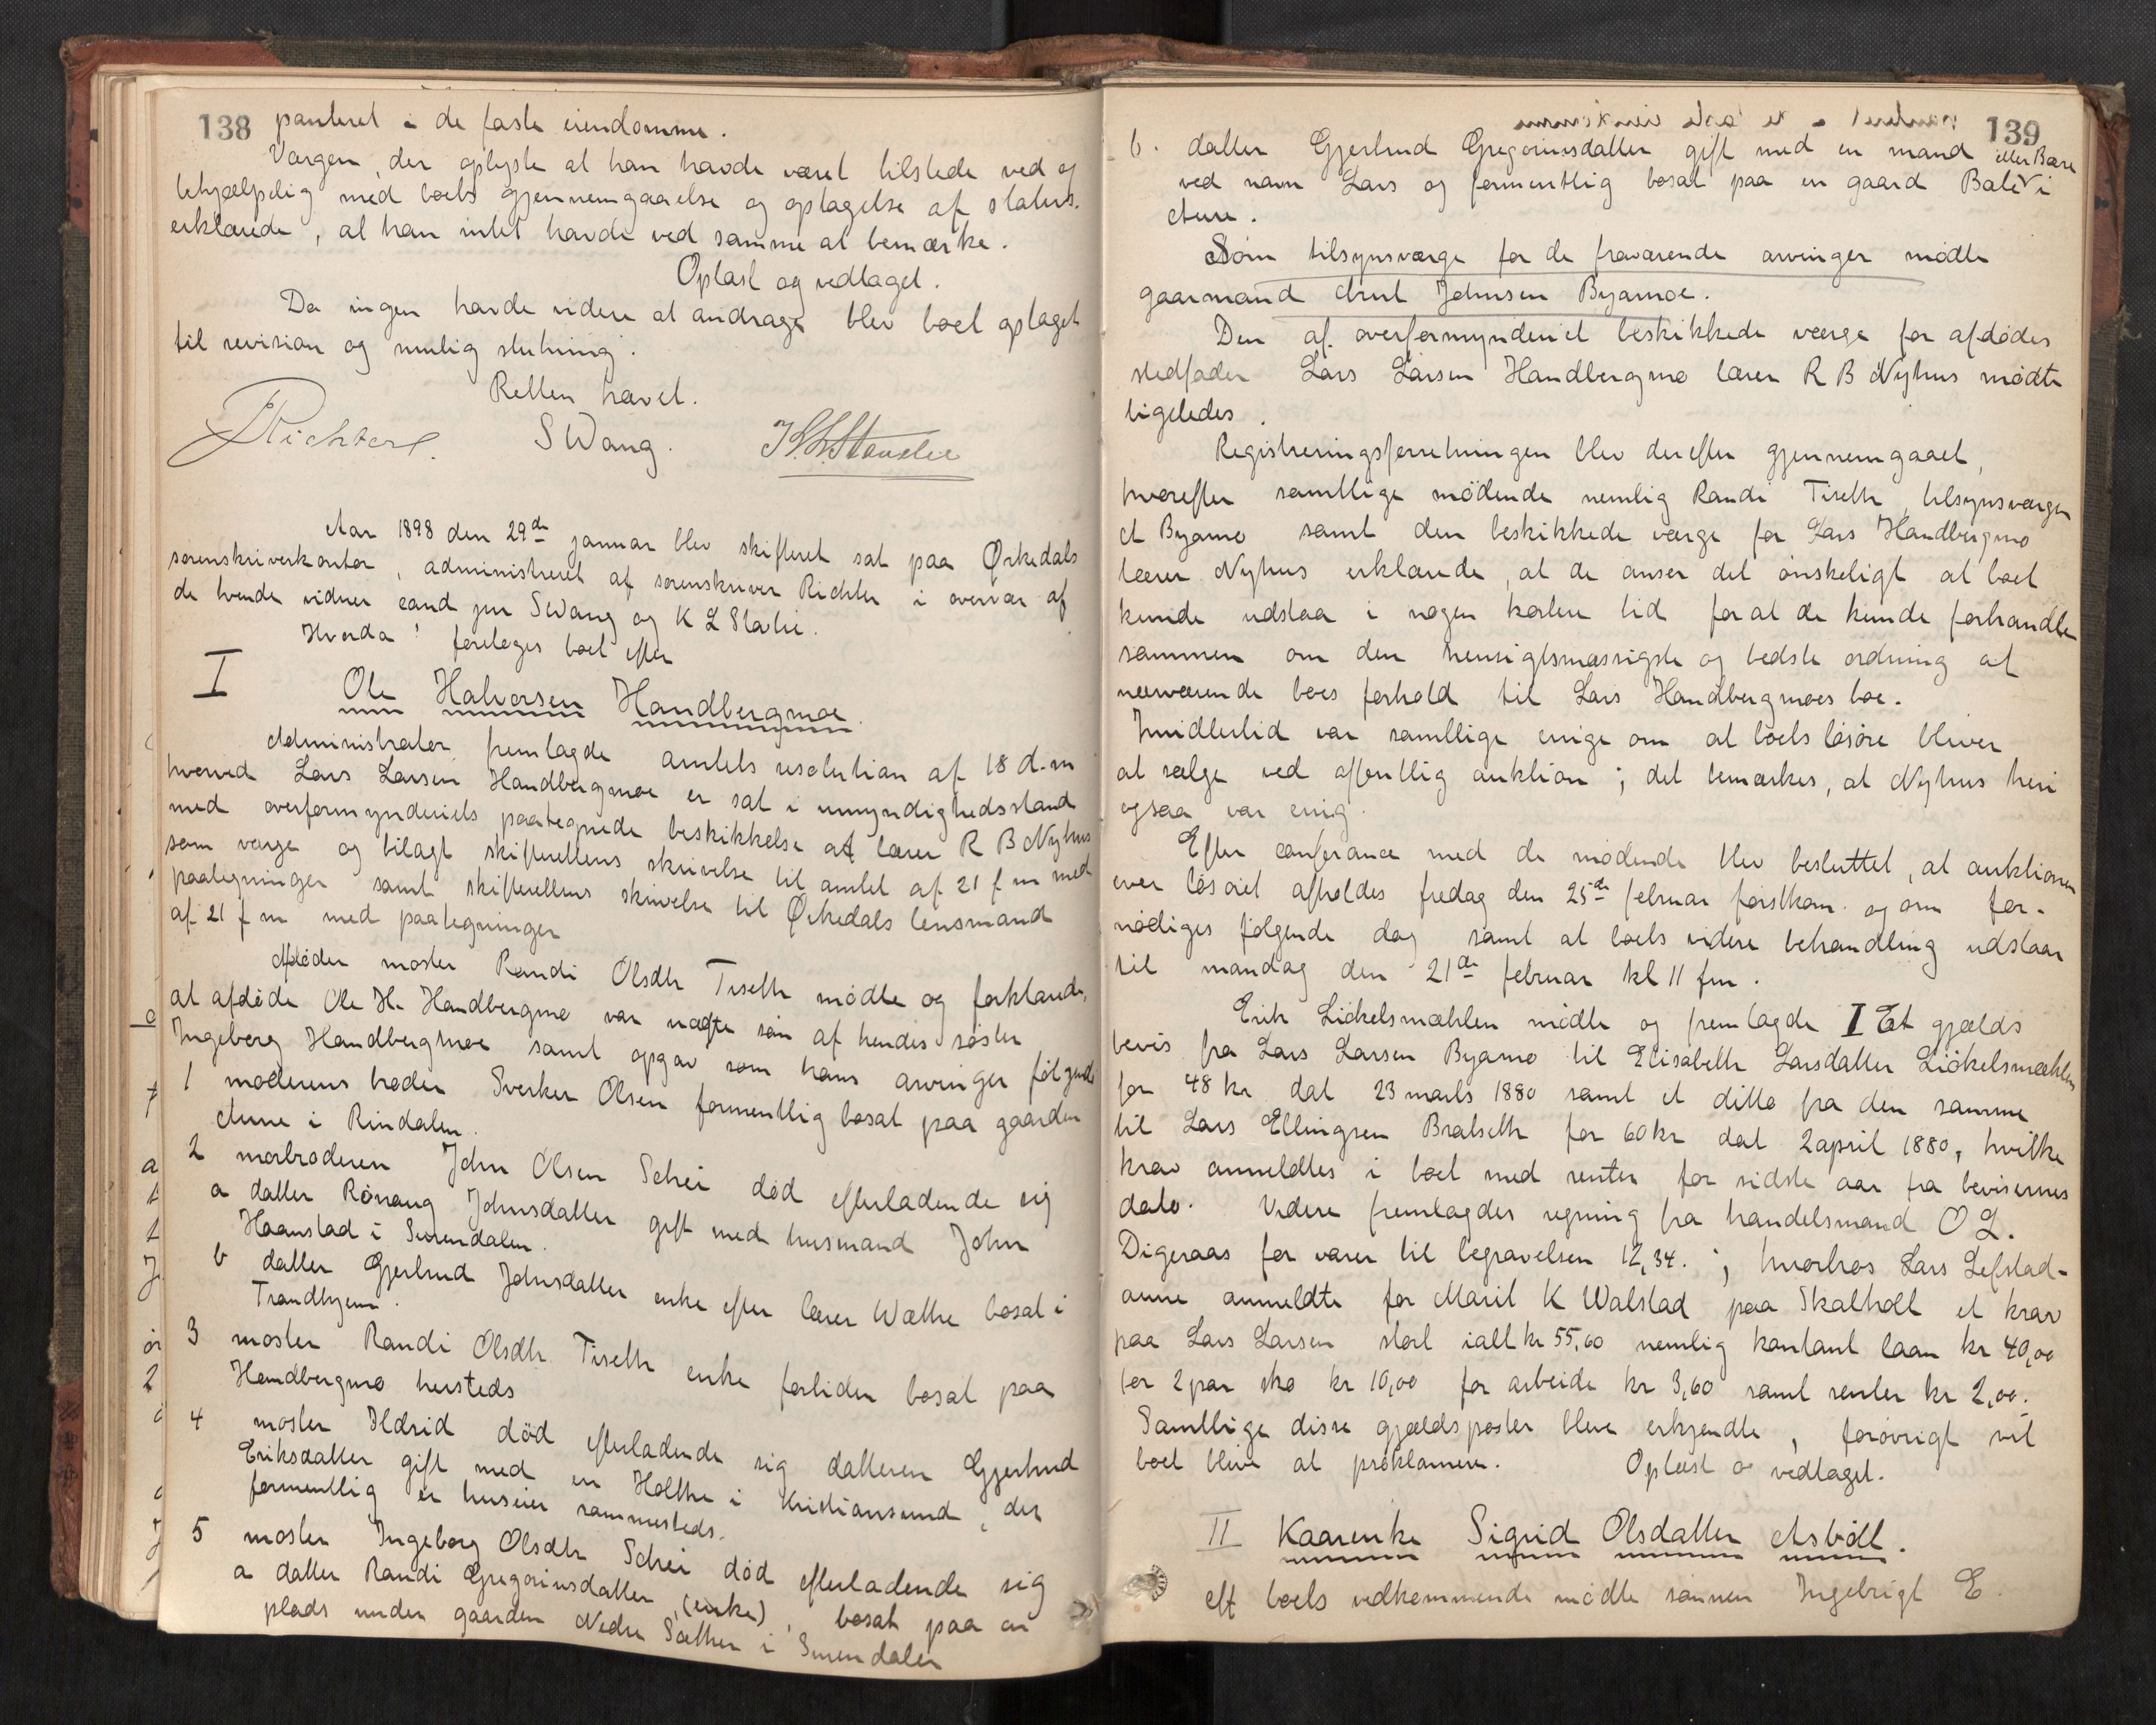 138
panteret i de faste eiendomme.
Værgen, der oplyste at han havde været tilstede ved og
behjælpelig med boets gjennemgaaelse og optagelse af status.
erklærede, at han intet havde ved samme at bemærke.
Oplæst og vedtaget.
Da ingen havde videre at andrage blev boet optaget
til revision og mulig slutning.
Retten hævet.
Richter. S Wang.
Aar 1898 den 29de januar blev skifteret sat paa Ørkedals
sorenskriverkontor, administreret af sorenskriver Richter i overvær af
de tvende vidner cand jur S Wang og K L
Hvorda: foretoges boet efter
I
Ole Halvorsen Handbergmoe.
Administrator fremlagde amtets resolution af 18 d. m
hvorved Lars Larsen Handbergmoe er sat i umyndighedsstand
med overformynderiets paategnede beskikkelse af lærer R B Nyhus
som værge og bilagt skifterettens skrivelse til amtet af 21 f m med
paategninger samt skifterettens skrivelse til Ørkedals lensmand
af 21 f m med paategninger
Afdødes moster Randi Olsdtr Tiseth mødte og forklarede,
at afdøde Ole H. Handbergmo var uægte søn af hendes søster
Ingeborg Handbergmoe samt opgav som hans arvinger følgende
1 moderens broder Sverker Olsen formentlig bosat paa gaarden
Aune i Rindalen.
2 morbroderen John Olsen Schei død efterladende sig
a datter Rønaug Johnsdatter gift med husmand John
Haanstad i Surendalen.
b datter Gjertrud Johnsdatter enke efter lærer Wæthe bosat i
Trondhjem.
3 moster Randi Olsdtr Tiseth enke fortiden bosat paa
Handbergmo hersteds
4 moster Ildrid død efterladende sig datteren Gjertrud
Eriksdatter gift med en Holthe i Kristiansund, der
formentlig er huseier sammesteds.
5 moster Ingeborg Olsdtr Schei død efterladende sig
a datter Randi Gregoriusdatter (enke), bosat paa en
plads under gaarden Nedre Sæther i Surendalen
139
b. datter Gjertrud Gregoriusdatter gift med en mand
ved navn Lars og formentlig bosat paa en gaard Bale eller Bære i
Aure.
Som tilsynsværge for de fraværende arvinger mødte
gaarmand Arnt Johnsen Byamoe.
Den af overformynderiet beskikkede værge for afdødes
stedfader Lars Larsen Handbergmo lærer R B Nyhus mødte
ligeledes.
Registreringsforretningen blev derefter gjennemgaaet,
hvorefter samtlige mødende nemlig Randi Tiseth, tilsynsværgen
A Byamo samt den beskikkede værge for Lars Handbergmo
lærer Nyhus erklærede, at de anser det ønskeligt at boet
kunde udstaa i nogen kortere tid for at de kunde forhandle
sammen om den hensigtsmæssigste og bedste ordning af
nærværende boes forhold til Lars Handbergmoes boe.
Imidlertid var samtlige enige om at boets løsøre bliver
at sælge ved offentlig auktion; det bemærkes, at Nyhus heri
ogsaa var enig.
Efter conferance med de mødende blev besluttet, at auktionen
over løsøret afholdes fredag den 25de februar førstkom. og om for-
nødiges følgende dag samt at boets videre behandling udstaar
til mandag den 21de februar kl 11 fm.
Erik Liøkelsmæhlen mødte og fremlagde I Et gjælds
bevis fra Lars Larsen Byamo til Elisabeth Larsdatter Liøkelsmæhlen
for 48 kr dat 23 marts 1880 samt et ditto fra den samme
til Lars Ellingsen Bratseth for 60 kr dat 2 april 1880, hvilke
krav anmeldtes i boet med renter for sidste aar fra bevisernes
dato. Videre fremlagdes regning fra handelsmand O L.
Digeraas for varer til begravelsen 12,34.; hvorhos Lars Lefstad-
aune anmeldte for Marit K Walstad paa Skalholt et krav
paa Lars Larsen stort ialt kr 55,60 nemlig kontant laan kr 40,00
for 2 par sko kr 10,00 for arbeide kr 3,60 samt renter kr 2,00.
Samtlige disse gjældsposter bleve erkjendte, forøvrigt vil
boet blive at proklamere. Oplæst og vedtaget.
II Kaarenke Sigrid Olsdatter Asbøll.
dette boets vedkommende mødte sønnen Ingebrigt E